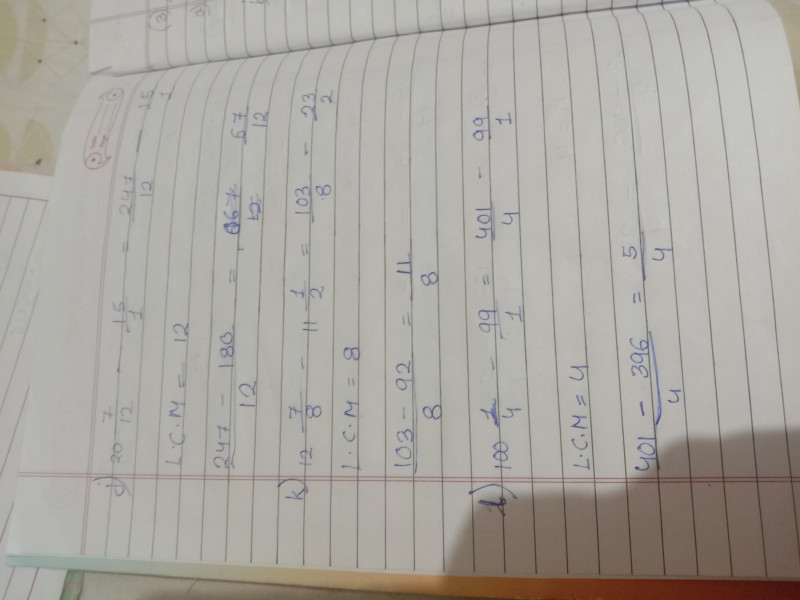 j) 20 7/12 - 15/1 = 247/12 - 15/1
L.C.M = 12
247 - 180/12 = 67/12
k) 12 7/8 - 11 1/2 = 103/8 - 23/2
L.C.M = 8
103 - 92/8 = 11/8
l) 100 1/4 - 99/1 = 401/4 - 99/1
L.C.M = 4
401 - 396/4 = 5/4